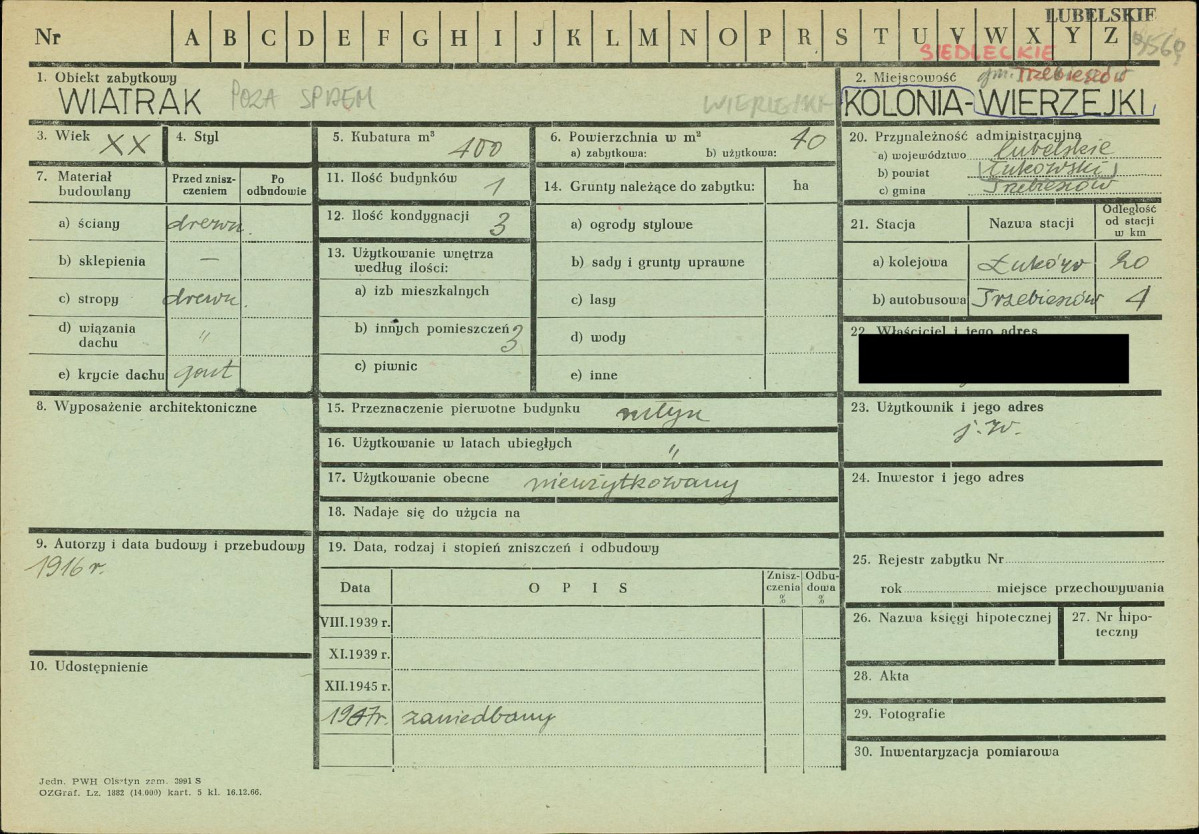 LUBELSKIE
Nr A B C D E F G H I J K L M N O P R S T U V W X Y Z
SIEDLECKIE
1. Obiekt zabytkowy
WIATRAK POZA SPISEM
2. Miejscowość gm. Trzebieszów
KOLONIA-WIERZEJKI
3. Wiek XX
4. Styl
5. Kubatura m³ 400
6. Powierzchnia w m² 40
a) zabytkowa: b) użytkowa:
7. Materiał budowlany
Przed zniszczeniem
Po odbudowie
a) ściany drewn.
b) sklepienia —
c) stropy drewn.
d) wiązania dachu "
e) krycie dachu gont
11. Ilość budynków 1
12. Ilość kondygnacji 3
13. Użytkowanie wnętrza
według ilości:
a) izb mieszkalnych
b) innych pomieszczeń 3
c) piwnic
14. Grunty należące do zabytku: ha
a) ogrody stylowe
b) sady i grunty uprawne
c) lasy
d) wody
e) inne
20. Przynależność administracyjna
a) województwo lubelskie
b) powiat Łukowski
c) gmina Trzebieszów
21. Stacja Nazwa stacji Odległość od stacji w km
a) kolejowa Łuków 20
b) autobusowa Trzebieszów 4
22. Właściciel i jego adres
8. Wyposażenie architektoniczne
15. Przeznaczenie pierwotne budynku młyn
16. Użytkowanie w latach ubiegłych "
17. Użytkowanie obecne nieużytkowany
18. Nadaje się do użycia na
23. Użytkownik i jego adres
j.w.
24. Inwestor i jego adres
9. Autorzy i data budowy i przebudowy
1916 r.
10. Udostępnienie
19. Data, rodzaj i stopień zniszczeń i odbudowy
Data OPIS Zniszczenia % Odbudowa %
VIII.1939 r.
XI.1939 r.
XII.1945 r.
zaniedbany
25. Rejestr zabytku Nr
rok miejsce przechowywania
26. Nazwa księgi hipotecznej
27. Nr hipoteczny
28. Akta
29. Fotografie
30. Inwentaryzacja pomiarowa
Jedn. PWH Olsztyn zam. 3991 S
OZGraf. Lz. 1882 (14.000) kart. 5 kl. 16.12.66.